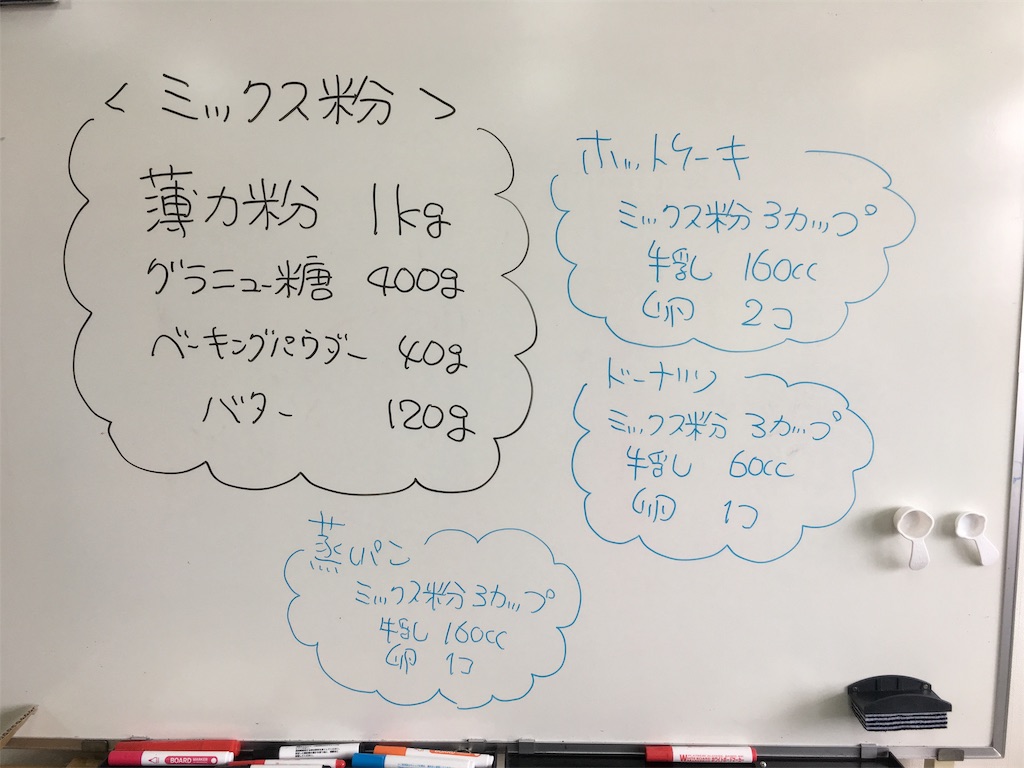 ＜ミックス粉＞
薄力粉 1kg
グラニュー糖 400g
ベーキングパウダー 40g
バター 120g
ホットケーキ
ミックス粉 3カップ
牛乳 160cc
卵 2コ
ドーナツ
ミックス粉 3カップ
牛乳 60cc
卵 1コ
蒸しパン
ミックス粉 3カップ
牛乳 160cc
卵 1コ
BOARD MARKER